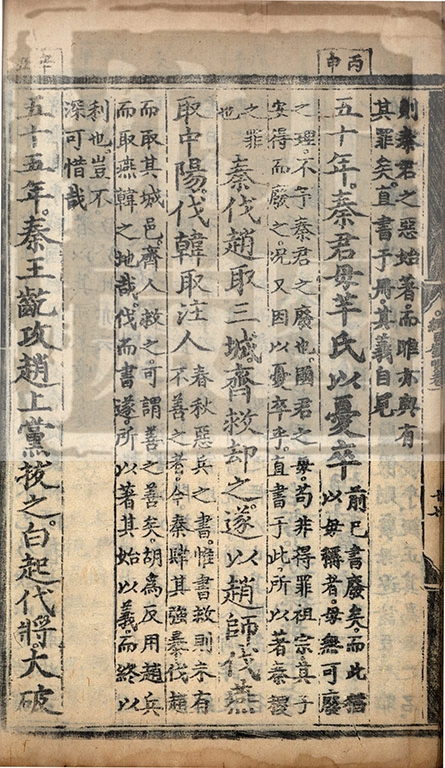 丙申
則秦君之惡始著而睢亦與有
其罪矣直書于冊其義自見
五十年。秦君母芈氏以憂卒
前巳書廢矣而此猶
以母稱者母無可廢
之理不予秦君之廢也國君之母苟非得罪祖宗其子
安得而廢之况又因以憂卒乎直書于此所以著秦稷
之罪
也
秦伐趙取三城。齊救却之。遂以趙師伐燕
取中陽。伐韓取注人
春秋惡兵之書惟書救則未有
不善之者今秦肆其強暴伐趙
而取其城邑齊人救之可謂善之善矣胡為反用趙兵
而取燕韓之地哉伐而書遂所以著其始以義而終以
利也豈不
深可惜哉
五十五年。秦王齕攻趙上黨拔之。白起代將。大破